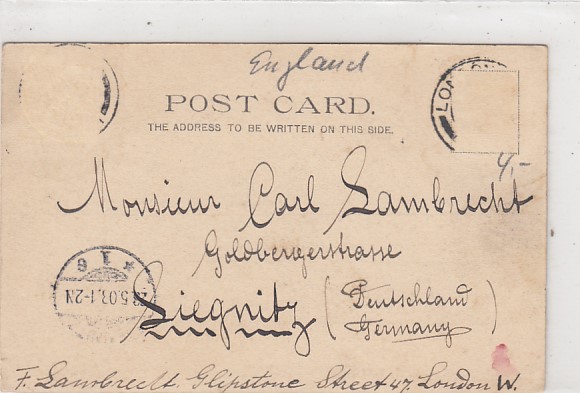 England
POST CARD.
THE ADDRESS TO BE WRITTEN ON THIS SIDE.
LONDON
4,-
Monsieur Carl Lambrecht
Goldbergerstrasse
Liegnitz (Deutschland
Germany)
5.03.1-2N
F. Lambrecht Glipstone Street 47. London W.